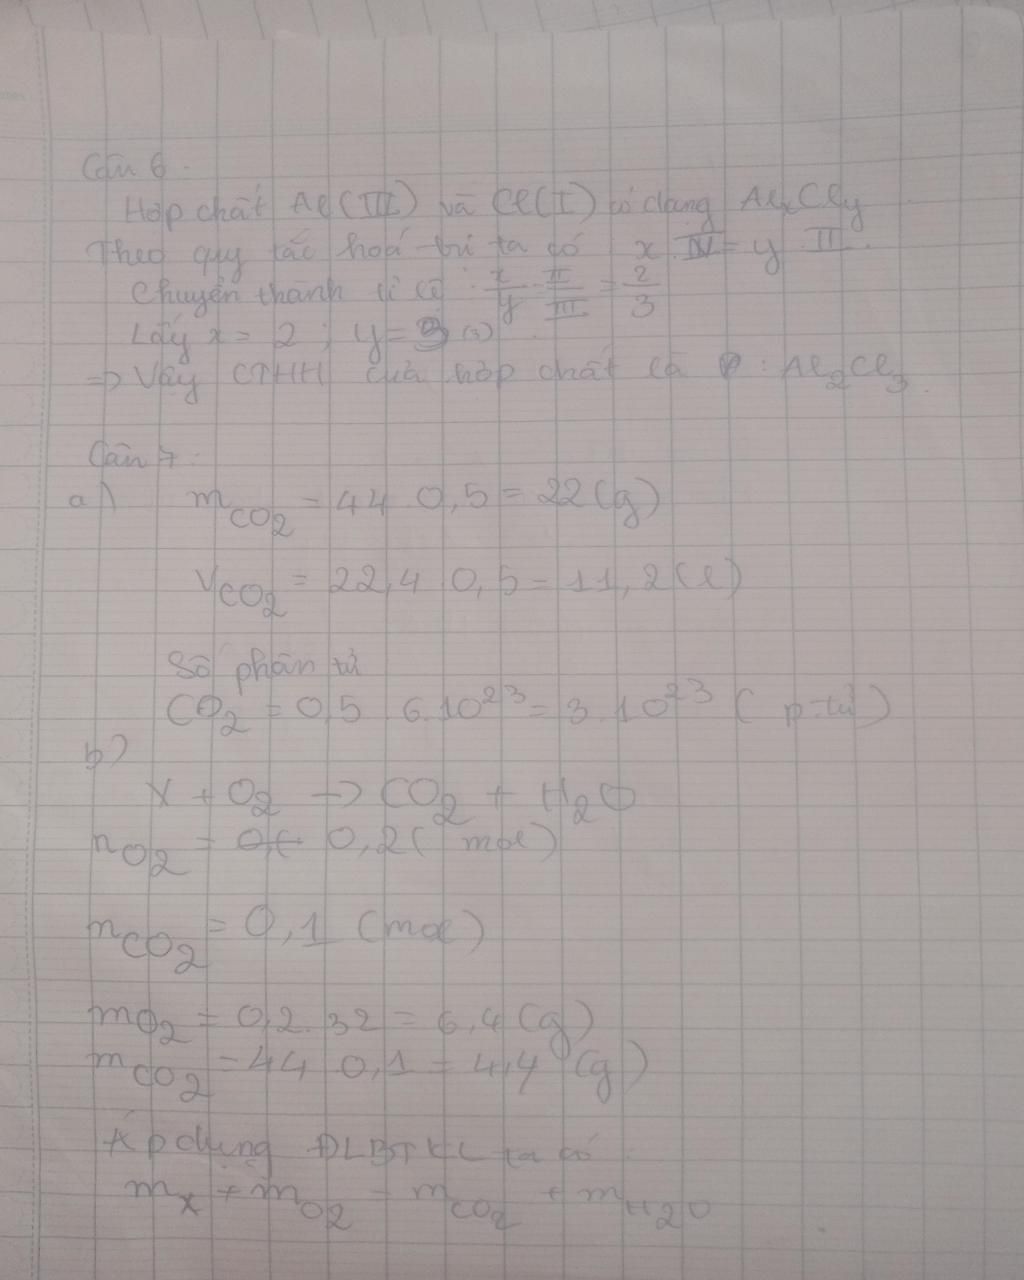 Câu 6.
Hợp chất Al(III) và Cl(I) có dạng AlxCly
Theo quy tắc hoá trị ta có x. = y. II.
Chuyển thành tỉ lệ: x/y = II/III = 2/3
Lấy x = 2; y = 3 (3)
=> Vậy CTHH của hợp chất là : Al2Cl3.
Câu 7.
a) mCO2 = 44.0,5 = 22(g)
VCO2 = 22,4.0,5 = 11,2(l)
Số phân tử
CO2 = 0,5.6.10^23 = 3.10^23 (p-tử)
b)
X + O2 -> CO2 + H2O
nO2 = 0,2( mol)
nCO2 = 0,1 (mol)
mO2 = 0,2.32 = 6,4(g)
mCO2 = 44.0,1 = 4,4 (g)
Áp dụng ĐLBTKL ta có:
mx + mO2 = mCO2 + mH2O